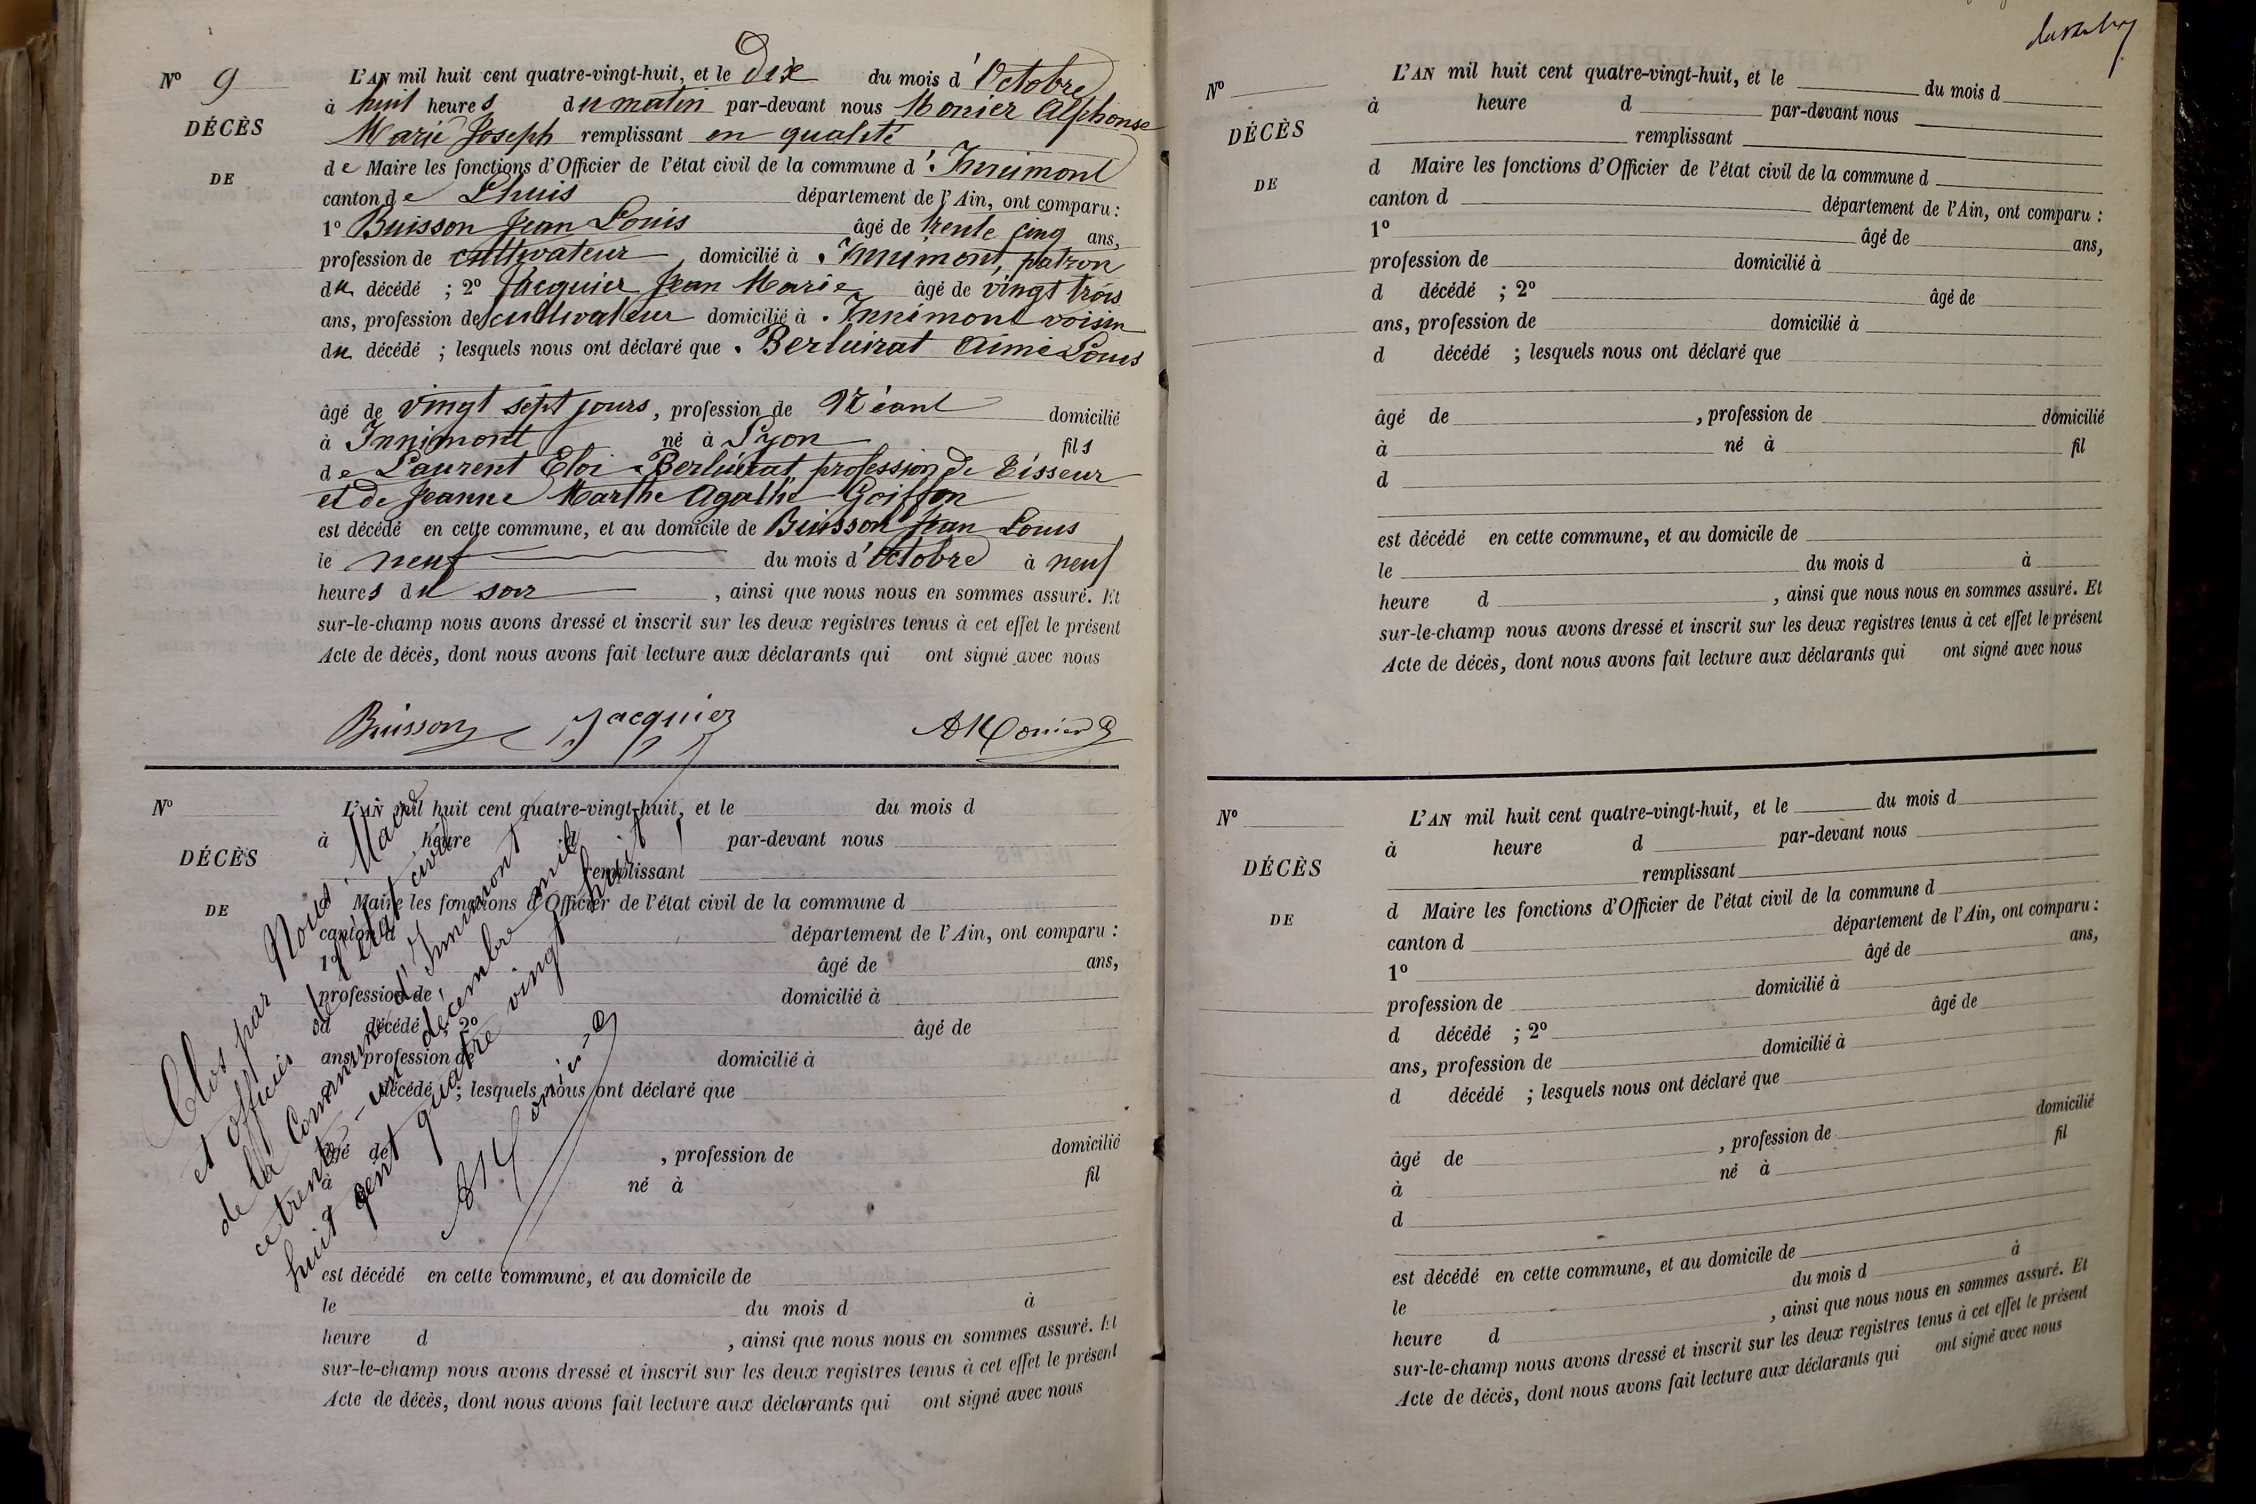 N° 9
DÉCÈS
DE
L'AN mil huit cent quatre-vingt-huit, et le Dix du mois d'Octobre
à huit heures du matin par-devant nous Monier Alphonse
Marie Joseph remplissant en qualité
de Maire les fonctions d'Officier de l'état civil de la commune d'Innimont
canton de Lhuis département de l'Ain, ont comparu :
1° Buisson Jean Louis âgé de trente cinq ans,
profession de cultivateur domicilié à Innimont, patron
du décédé ; 2° Jacquier Jean Marie âgé de vingt trois
ans, profession de cultivateur domicilié à Innimont voisin
du décédé ; lesquels nous ont déclaré que Berluirat Aimé Louis
âgé de vingt sept jours, profession de Néant domicilié
à Innimont né à Lyon fils
de Laurent Eloi Berluirat profession de Tisseur
et de Jeanne Marthe Agathe Goiffon
est décédé en cette commune, et au domicile de Buisson Jean Louis
le neuf du mois d'Octobre à neuf
heures du soir, ainsi que nous nous en sommes assuré. Et
sur-le-champ nous avons dressé et inscrit sur les deux registres tenus à cet effet le présent
Acte de décès, dont nous avons fait lecture aux déclarants qui ont signé avec nous
Buisson Jacquier AMonier
N°
DÉCÈS
DE
L'AN mil huit cent quatre-vingt-huit, et le du mois d
à heure d par-devant nous
remplissant
d Maire les fonctions d'Officier de l'état civil de la commune d
canton d département de l'Ain, ont comparu :
1° âgé de ans,
profession de domicilié à
d décédé ; 2° âgé de
ans, profession de domicilié à
d décédé ; lesquels nous ont déclaré que
âgé de , profession de domicilié
à né à fil
est décédé en cette commune, et au domicile de
le du mois d à
heure d , ainsi que nous nous en sommes assuré. Et
sur-le-champ nous avons dressé et inscrit sur les deux registres tenus à cet effet le présent
Acte de décès, dont nous avons fait lecture aux déclarants qui ont signé avec nous
Clos par Nous, Maire
et officier de l'état civil
de la Commune d'Innimont
ce trente-un décembre mil
huit cent quatre vingt huit
AMonier
N°
DÉCÈS
DE
L'AN mil huit cent quatre-vingt-huit, et le du mois d
à heure d par-devant nous
remplissant
d Maire les fonctions d'Officier de l'état civil de la commune d
canton d département de l'Ain, ont comparu :
1° âgé de ans,
profession de domicilié à
d décédé ; 2° âgé de
ans, profession de domicilié à
d décédé ; lesquels nous ont déclaré que
âgé de , profession de domicilié
à né à fil
d
est décédé en cette commune, et au domicile de
le du mois d à
heure d , ainsi que nous nous en sommes assuré. Et
sur-le-champ nous avons dressé et inscrit sur les deux registres tenus à cet effet le présent
Acte de décès, dont nous avons fait lecture aux déclarants qui ont signé avec nous
N°
DÉCÈS
DE
L'AN mil huit cent quatre-vingt-huit, et le du mois d
à heure d par-devant nous
remplissant
d Maire les fonctions d'Officier de l'état civil de la commune d
canton d département de l'Ain, ont comparu :
1° âgé de ans,
profession de domicilié à
d décédé ; 2° âgé de
ans, profession de domicilié à
d décédé ; lesquels nous ont déclaré que
âgé de , profession de domicilié
à né à fil
d
est décédé en cette commune, et au domicile de
le du mois d à
heure d , ainsi que nous nous en sommes assuré. Et
sur-le-champ nous avons dressé et inscrit sur les deux registres tenus à cet effet le présent
Acte de décès, dont nous avons fait lecture aux déclarants qui ont signé avec nous